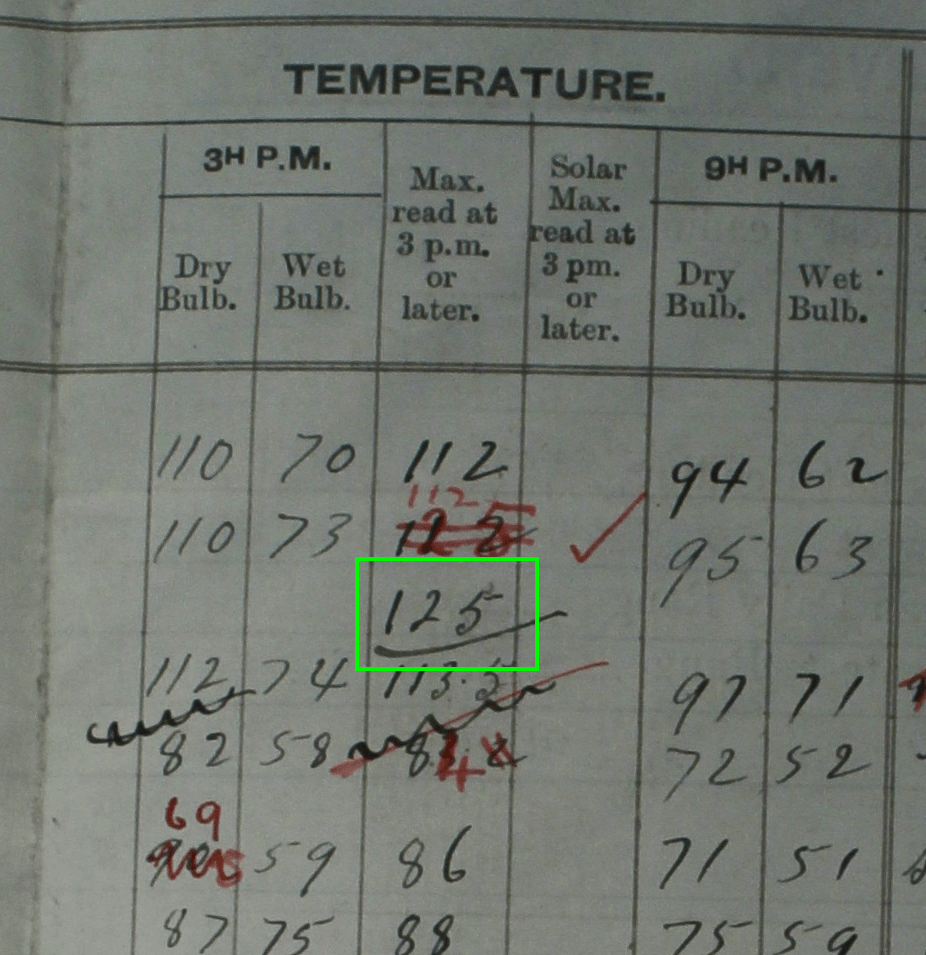 TEMPERATURE.
3H P.M. Max. read at 3 p.m. or later. Solar Max. read at 3 pm. or later. 9H P.M.
Dry Bulb. Wet Bulb. Dry Bulb. Wet Bulb.
110 70 112 94 62
112
110 73 95 63
125
112 74 113.5 97 71
82 58 72 52
69
59 86 71 51
87 75 88 75 59